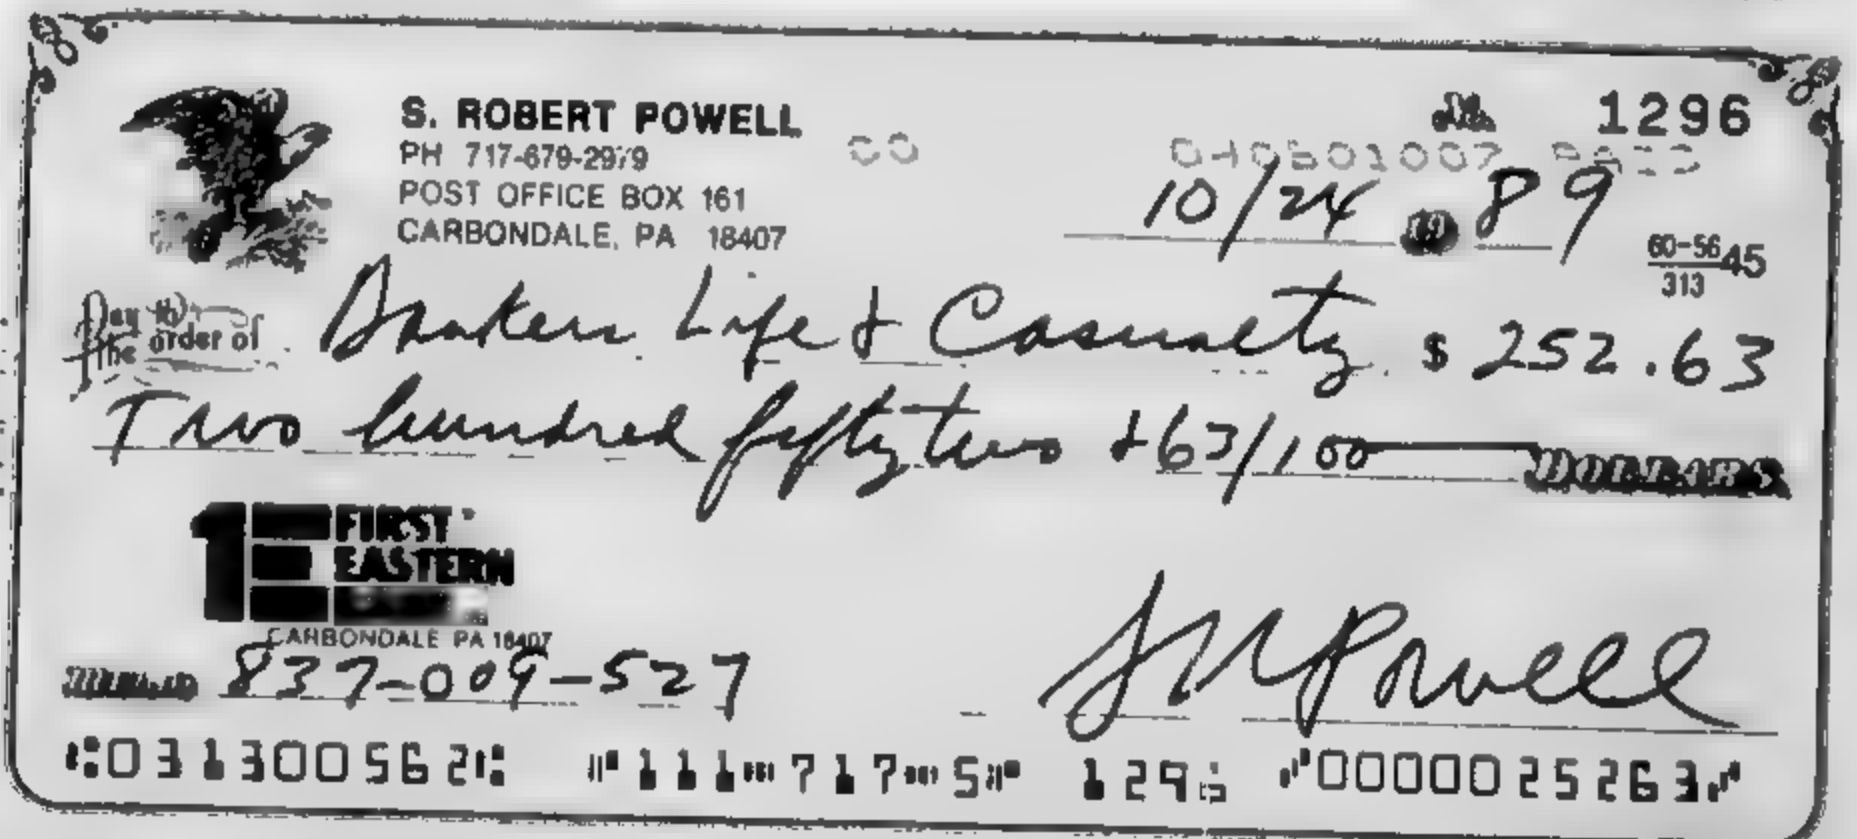 S. ROBERT POWELL
№ 1296
PH 717-679-2979
POST OFFICE BOX 161
CARBONDALE, PA 18407
10/24 19 89
60-56 45
313
Pay to the order of Bankers Life & Casualty $ 252.63
Two hundred fifty two & 63/100 DOLLARS
1E FIRST EASTERN
CARBONDALE PA 18407
837-009-527
S R Powell
⑆031300562⑆ ⑈111⑉717⑉5⑈ 1296 ⑈0000025263⑈